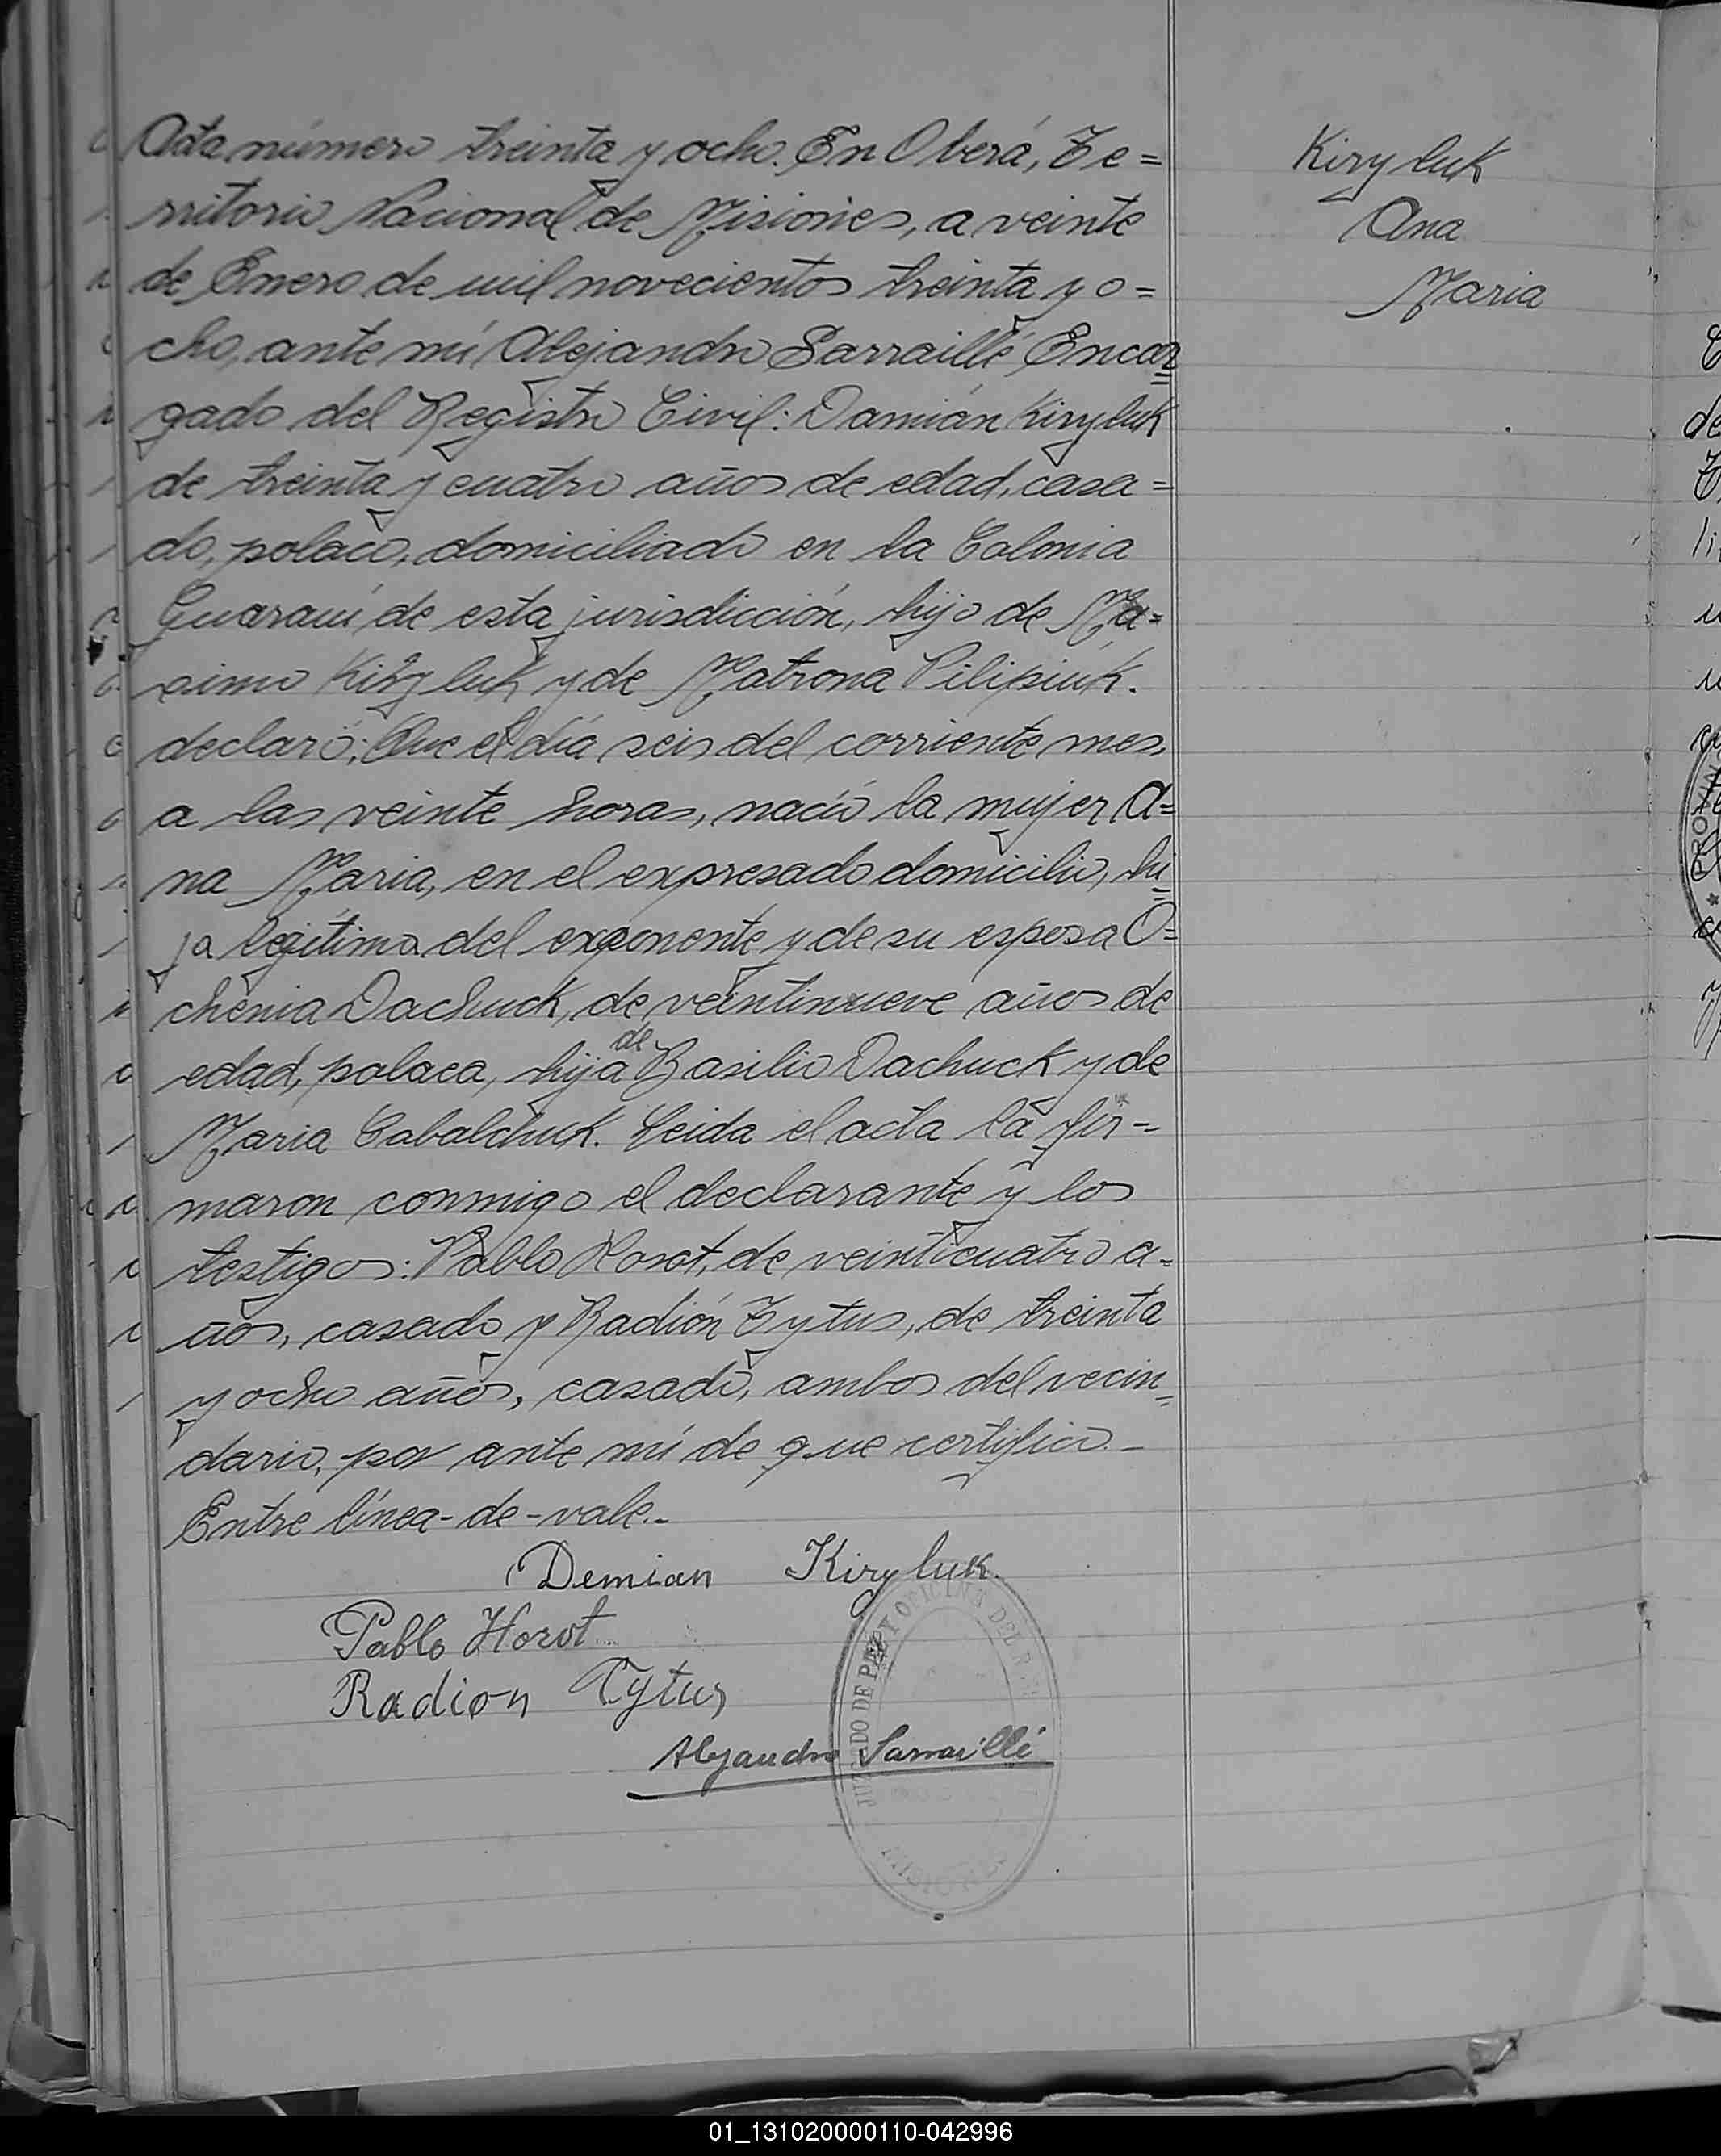 Acta número treinta y ocho. En Oberá, Te=
rritorio Nacional de Misiones, a veinte
de Enero de mil novecientos treinta y o=
cho, ante mí Alejandro Sarraillé Encar
gado del Registro Civil: Damián Kiryluk
de treinta y cuatro años de edad, casa=
do, polaco, domiciliado en la Colonia
Guaraní de esta jurisdicción, hijo de Ma=
ximo Kiryluk y de Matrona Pilipiuk.
declaró: Que el día seis del corriente mes,
a las veinte horas, nació la mujer A=
na Maria, en el expresado domicilio, hi
ja legítima del exponente y de su esposa O=
chenia Dachuck, de veintinueve años de
edad, polaca, hija de Basilio Dachuck y de
Maria Cabalchuk. Leida el acta la fir=
maron conmigo el declarante y los
testigos: Pablo Horot, de veinticuatro a=
ños, casado y Radión Tytus, de treinta
y ocho años, casado, ambos del vecin=
dario, por ante mí de que certifico.-
Entre línea-de-vale.-
Demian Kiryluk.
Pablo Horot
Radion Tytus
Alejandro Sarraillé
JUZGADO DE PAZ Y OFICINA DEL
MISIONES
Kiryluk
Ana
Maria
01_131020000110-042996